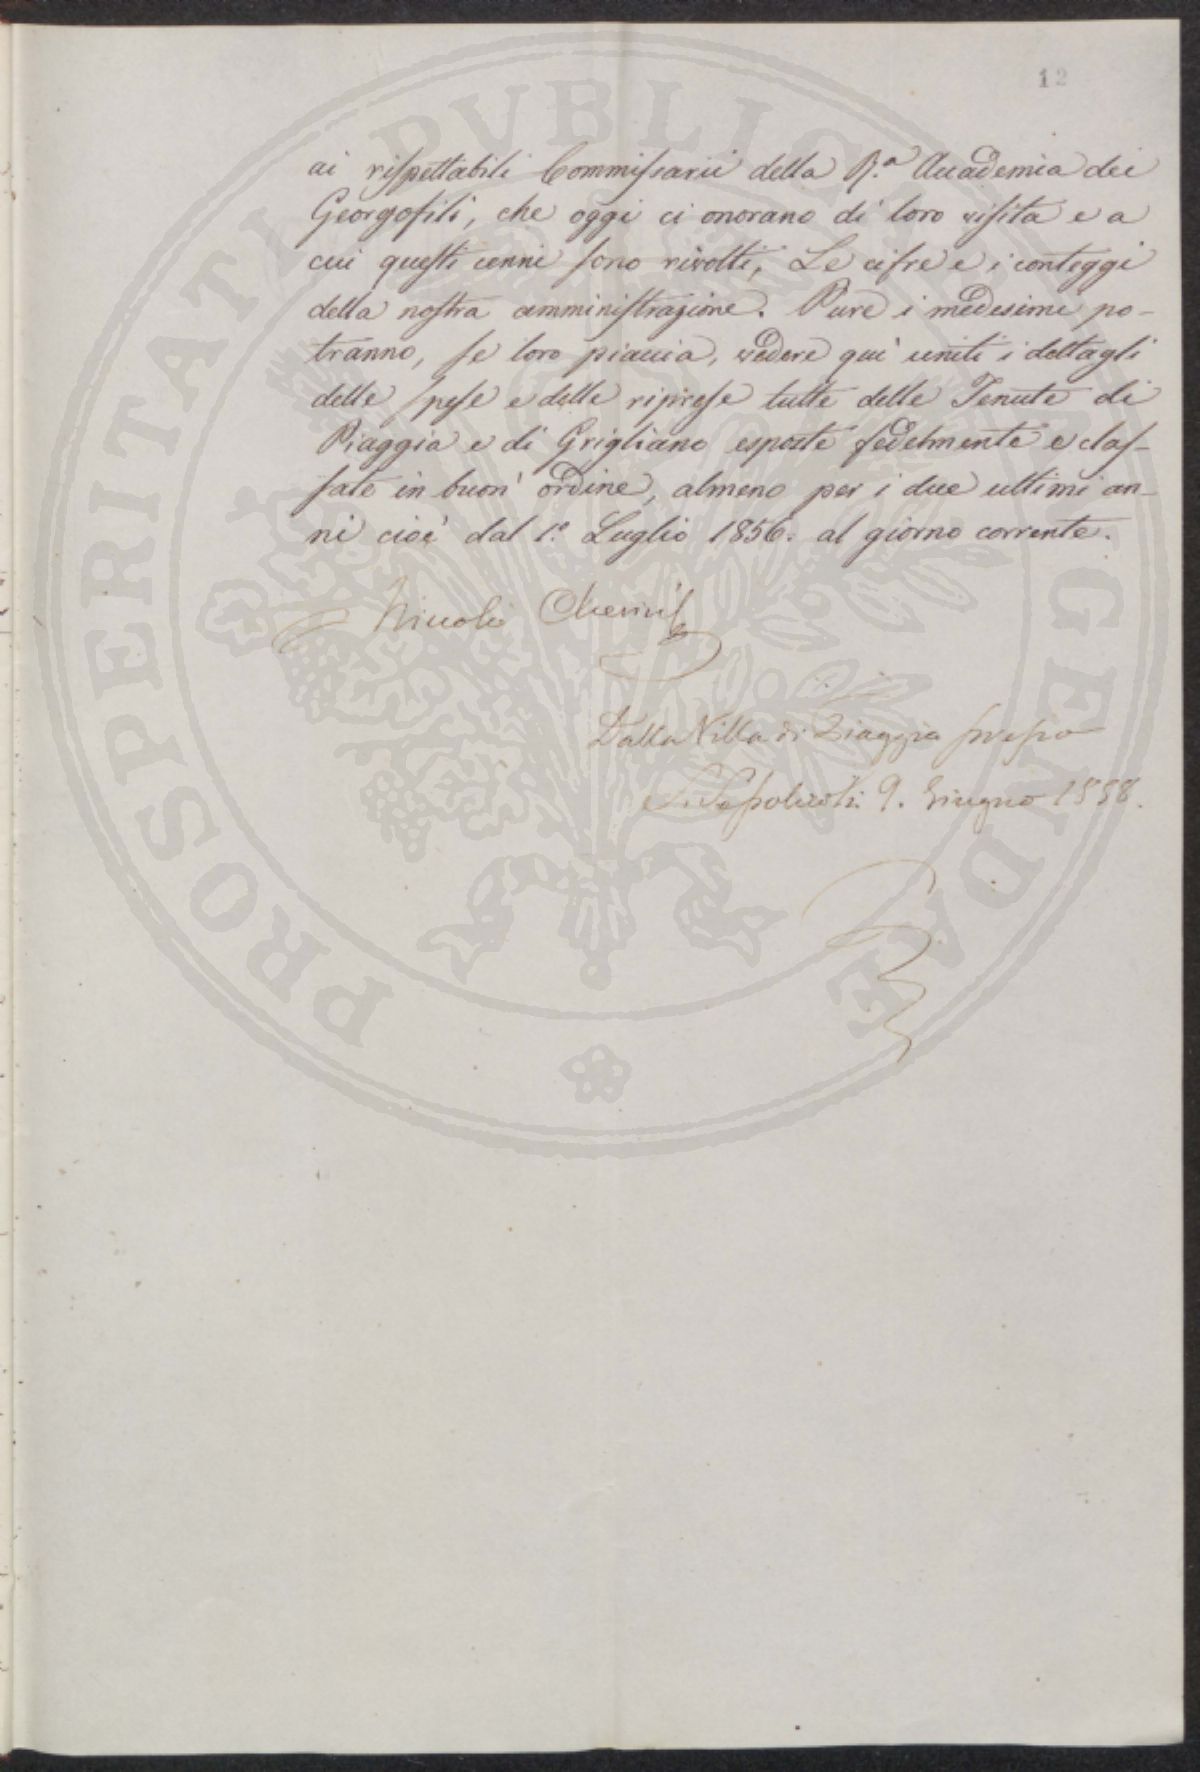 12
ai rispettabili Commissarii della R.ª Accademia dei
Georgofili, che oggi ci onorano di loro visita e a
cui questi cenni sono rivolti, Le cifre e i conteggi
della nostra amministrazione. Pure i medesimi po-
tranno, se loro piaccia, vedere quì uniti i dettagli
delle spese e delle riprese tutte delle Tenute di
Piaggia e di Grigliano esposte fedelmente e clas-
sate in buon' ordine, almeno per i due ultimi an-
ni cioè dal 1.º Luglio 1856. al giorno corrente.
Niccolò
Dalla Villa di Piaggia presso
S. Sepolcro li 9. Giugno 1858.
PROSPERITATI PUBLICAE AUGENDAE